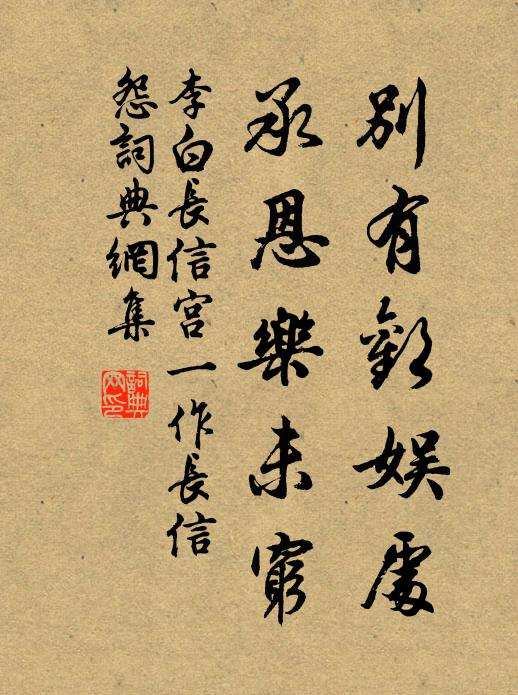 別有歡娛處
承恩樂未窮
李白長信宮一作長信
怨詞典網集
詞典
网印